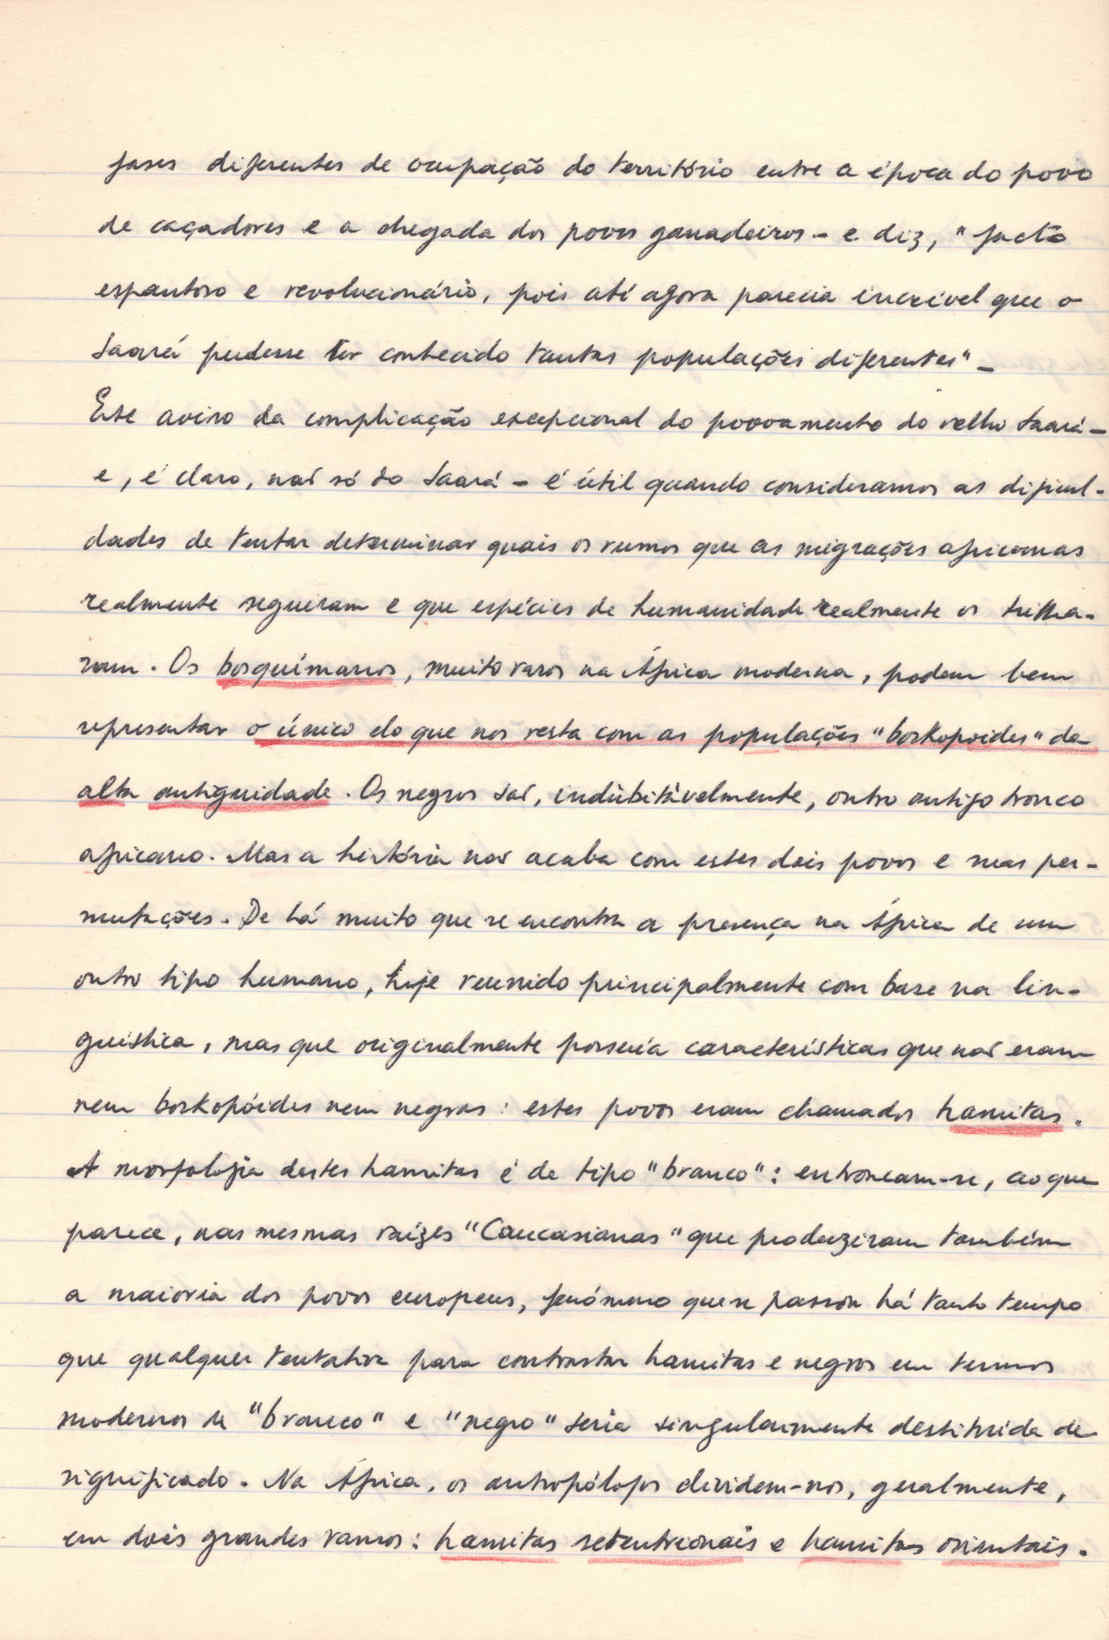 fases diferentes de ocupação do território entre a época do povo
de caçadores e a chegada dos povos ganadeiros - e diz, "facto
espantoso e revolucionário, pois até agora parecia incrível que o
Saará pudesse ter conhecido tantas populações diferentes" -
Este aviso da complicação excepcional do povoamento do velho Saará -
e, é claro, não só do Saará - é útil quando consideramos as dificul-
dades de tentar determinar quais os rumos que as migrações africanas
realmente seguiram e que espécies de humanidade realmente os trilha-
ram. Os bosquímanos, muito raros na África moderna, podem bem
representar o único elo que nos resta com as populações "boskopoides" da
alta antiguidade. Os negros são, indubitávelmente, outro antigo tronco
africano. Mas a história não acaba com estes dois povos e suas per-
mutações. De há muito que se encontra a presença na África de um
outro tipo humano, hoje reunido principalmente com base na lin-
guística, mas que originalmente possuia características que não eram
nem boskopóides nem negras: estes povos eram chamados hamitas.
A morfologia destes hamitas é de tipo "branco": entroncam-se, ao que
parece, nas mesmas raízes "Caucasianas" que produziram também
a maioria dos povos europeus, fenómeno que se passou há tanto tempo
que qualquer tentativa para contrastar hamitas e negros em termos
modernos de "branco" e "negro" seria singularmente destituída de
significado. Na África, os antropólogos dividem-nos, geralmente,
em dois grandes ramos: hamitas setentrionais e hamitas orientais.